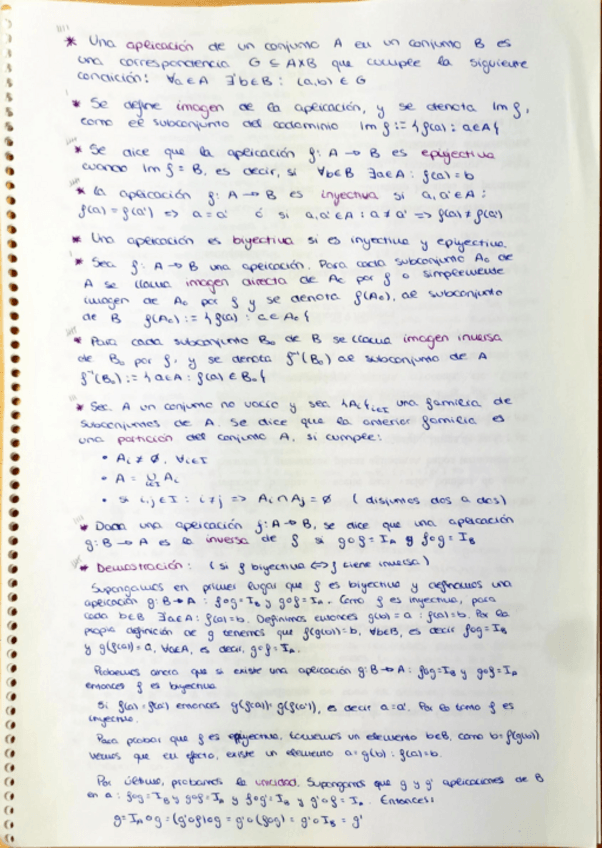 * Una aplicación de un conjunto A en un conjunto B es
una correspondencia G ⊆ AxB que cumple la siguiente
condición: ∀a∈A ∃'b∈B : (a,b) ∈ G
* Se define imagen de la aplicación, y se denota Im f,
como el subconjunto del codominio Im f := {f(a) : a∈A}
* Se dice que la aplicación f: A → B es epiyectiva
cuando Im f = B, es decir, si ∀b∈B ∃a∈A : f(a) = b
* La aplicación f: A → B es inyectiva si a,a'∈A :
f(a) = f(a') => a = a' ó si a,a'∈A : a ≠ a' => f(a) ≠ f(a')
* Una aplicación es biyectiva si es inyectiva y epiyectiva.
* Sea f: A → B una aplicación. Para cada subconjunto A₀ de
A se llama imagen directa de A₀ por f o simplemente
imagen de A₀ por f y se denota f(A₀), al subconjunto
de B f(A₀) := {f(a) : a∈A₀}
* Para cada subconjunto B₀ de B se llama imagen inversa
de B₀ por f, y se denota f⁻¹(B₀) al subconjunto de A
f⁻¹(B₀) := {a∈A : f(a) ∈ B₀}
* Sea A un conjunto no vacío y sea {Aᵢ}ᵢ∈I una familia de
subconjuntos de A. Se dice que la anterior familia es
una partición del conjunto A, si cumple:
• Aᵢ ≠ ∅, ∀i∈I
• A = ∪ᵢ∈I Aᵢ
• si i,j∈I : i≠j => Aᵢ ∩ Aⱼ = ∅ (disjuntos dos a dos)
* Dada una aplicación f: A→B, se dice que una aplicación
g: B → A es la inversa de f si g∘f = I_A y f∘g = I_B
* Demostración: (si f biyectiva <=> f tiene inversa)
Supongamos en primer lugar que f es biyectiva y definamos una
aplicación g: B→A : f∘g = I_B y g∘f = I_A. Como f es inyectiva, para
cada b∈B ∃'a∈A : f(a)=b. Definimos entonces g(b) = a : f(a)=b. Por la
propia definición de g tenemos que f(g(b))=b, ∀b∈B, es decir f∘g = I_B
y g(f(a)) = a, ∀a∈A, es decir, g∘f = I_A.
Probemos ahora que si existe una aplicación g: B→A : f∘g=I_B y g∘f = I_A
entonces f es biyectiva
Si f(a) = f(a') entonces g(f(a)) = g(f(a')), es decir a=a'. Por lo tanto f es
inyectiva.
Para probar que f es epiyectiva, tomemos un elemento b∈B, como b=f(g(b))
vemos que en efecto, existe un elemento a = g(b) : f(a)=b.
Por último, probamos la unicidad. Supongamos que g y g' aplicaciones de B
en A : f∘g = I_B y g∘f = I_A y f∘g' = I_B y g'∘f = I_A. Entonces:
g = I_A∘g = (g'∘f)∘g = g'∘(f∘g) = g'∘I_B = g'